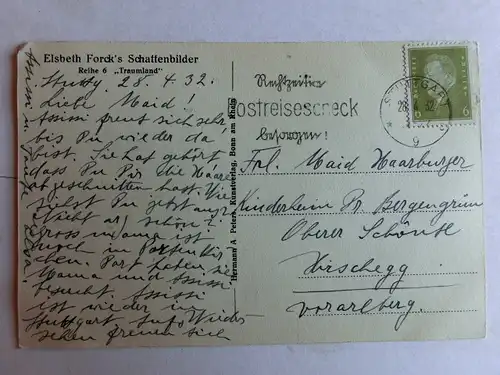 Elsbeth Forck's Schattenbilder
Reihe 6 „Traumland"
Stuttg. 28.4.32.
Liebe Maid!
Sissi freut sich sehr,
bis Du wieder da
bist. Sie hat gehört
dass Du Dir die Haare
abgeschnitten hast. Wie
siehst Du jetzt aus?
Nicht arg schön?
Grossmama ist
auch in Partenkir
chen. Dort haben sie
Mama und Sissi
besucht. Sissi
ist wieder in
Stuttgart. Auf Wieder
sehen freuen sich
Sissi
Hermann A. Peters, Kunstverlag, Bonn am Rhein
Rechtzeitig
Postreisescheck
besorgen!
STUTTGART
28.4.32
9
6
Frl. Maid Haarburger
Kinderheim Dr. Bergengrün
Oberer Schöntl
Hirschegg
Vorarlberg.